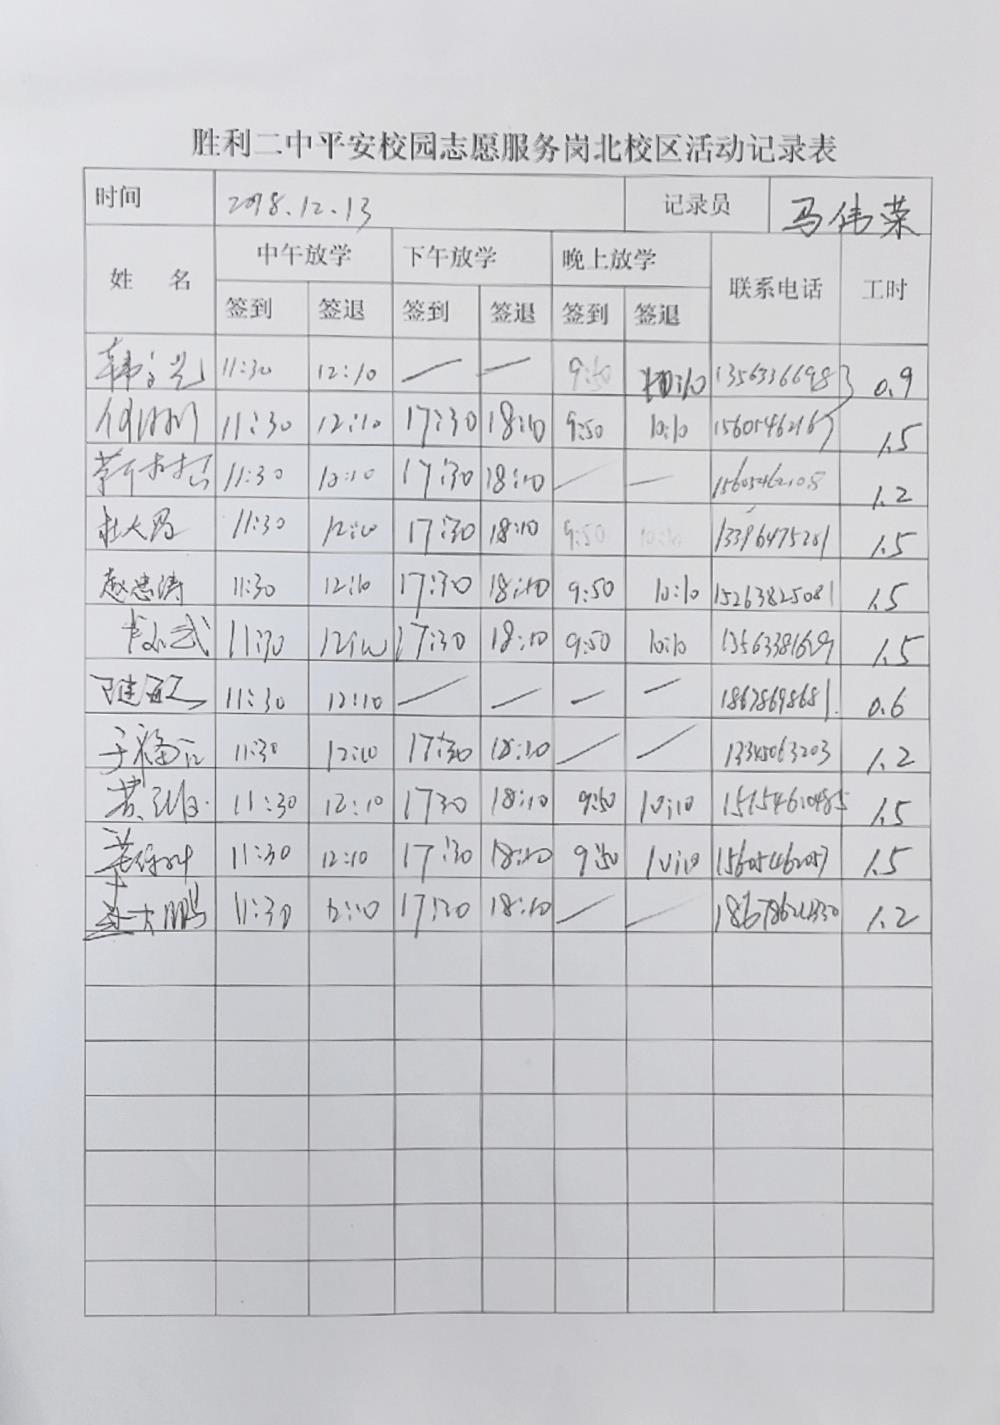 胜利二中平安校园志愿服务岗北校区活动记录表
时间 2018.12.13 记录员 马伟荣
姓 名 中午放学 下午放学 晚上放学 联系电话 工时
签到 签退 签到 签退 签到 签退
11:30 12:10 — — 9:50 10:10 13563366983 0.9
11:30 12:10 17:30 18:10 9:50 10:10 15605462167 1.5
11:30 12:10 17:30 18:10 — — 15605462108 1.2
11:30 12:10 17:30 18:10 9:50 10:10 13396475281 1.5
赵忠涛 11:30 12:10 17:30 18:10 9:50 10:10 15263825081 1.5
11:30 12:10 17:30 18:10 9:50 10:10 13563381629 1.5
11:30 12:10 — — — — 18678698681 0.6
11:30 12:10 17:30 18:10 — — 13345063203 1.2
11:30 12:10 1730 18:10 9:50 10:10 15154610485 1.5
11:30 12:10 17:30 18:10 9:50 10:10 15605462057 1.5
大鹏 11:30 12:10 17:30 18:10 — — 1.2